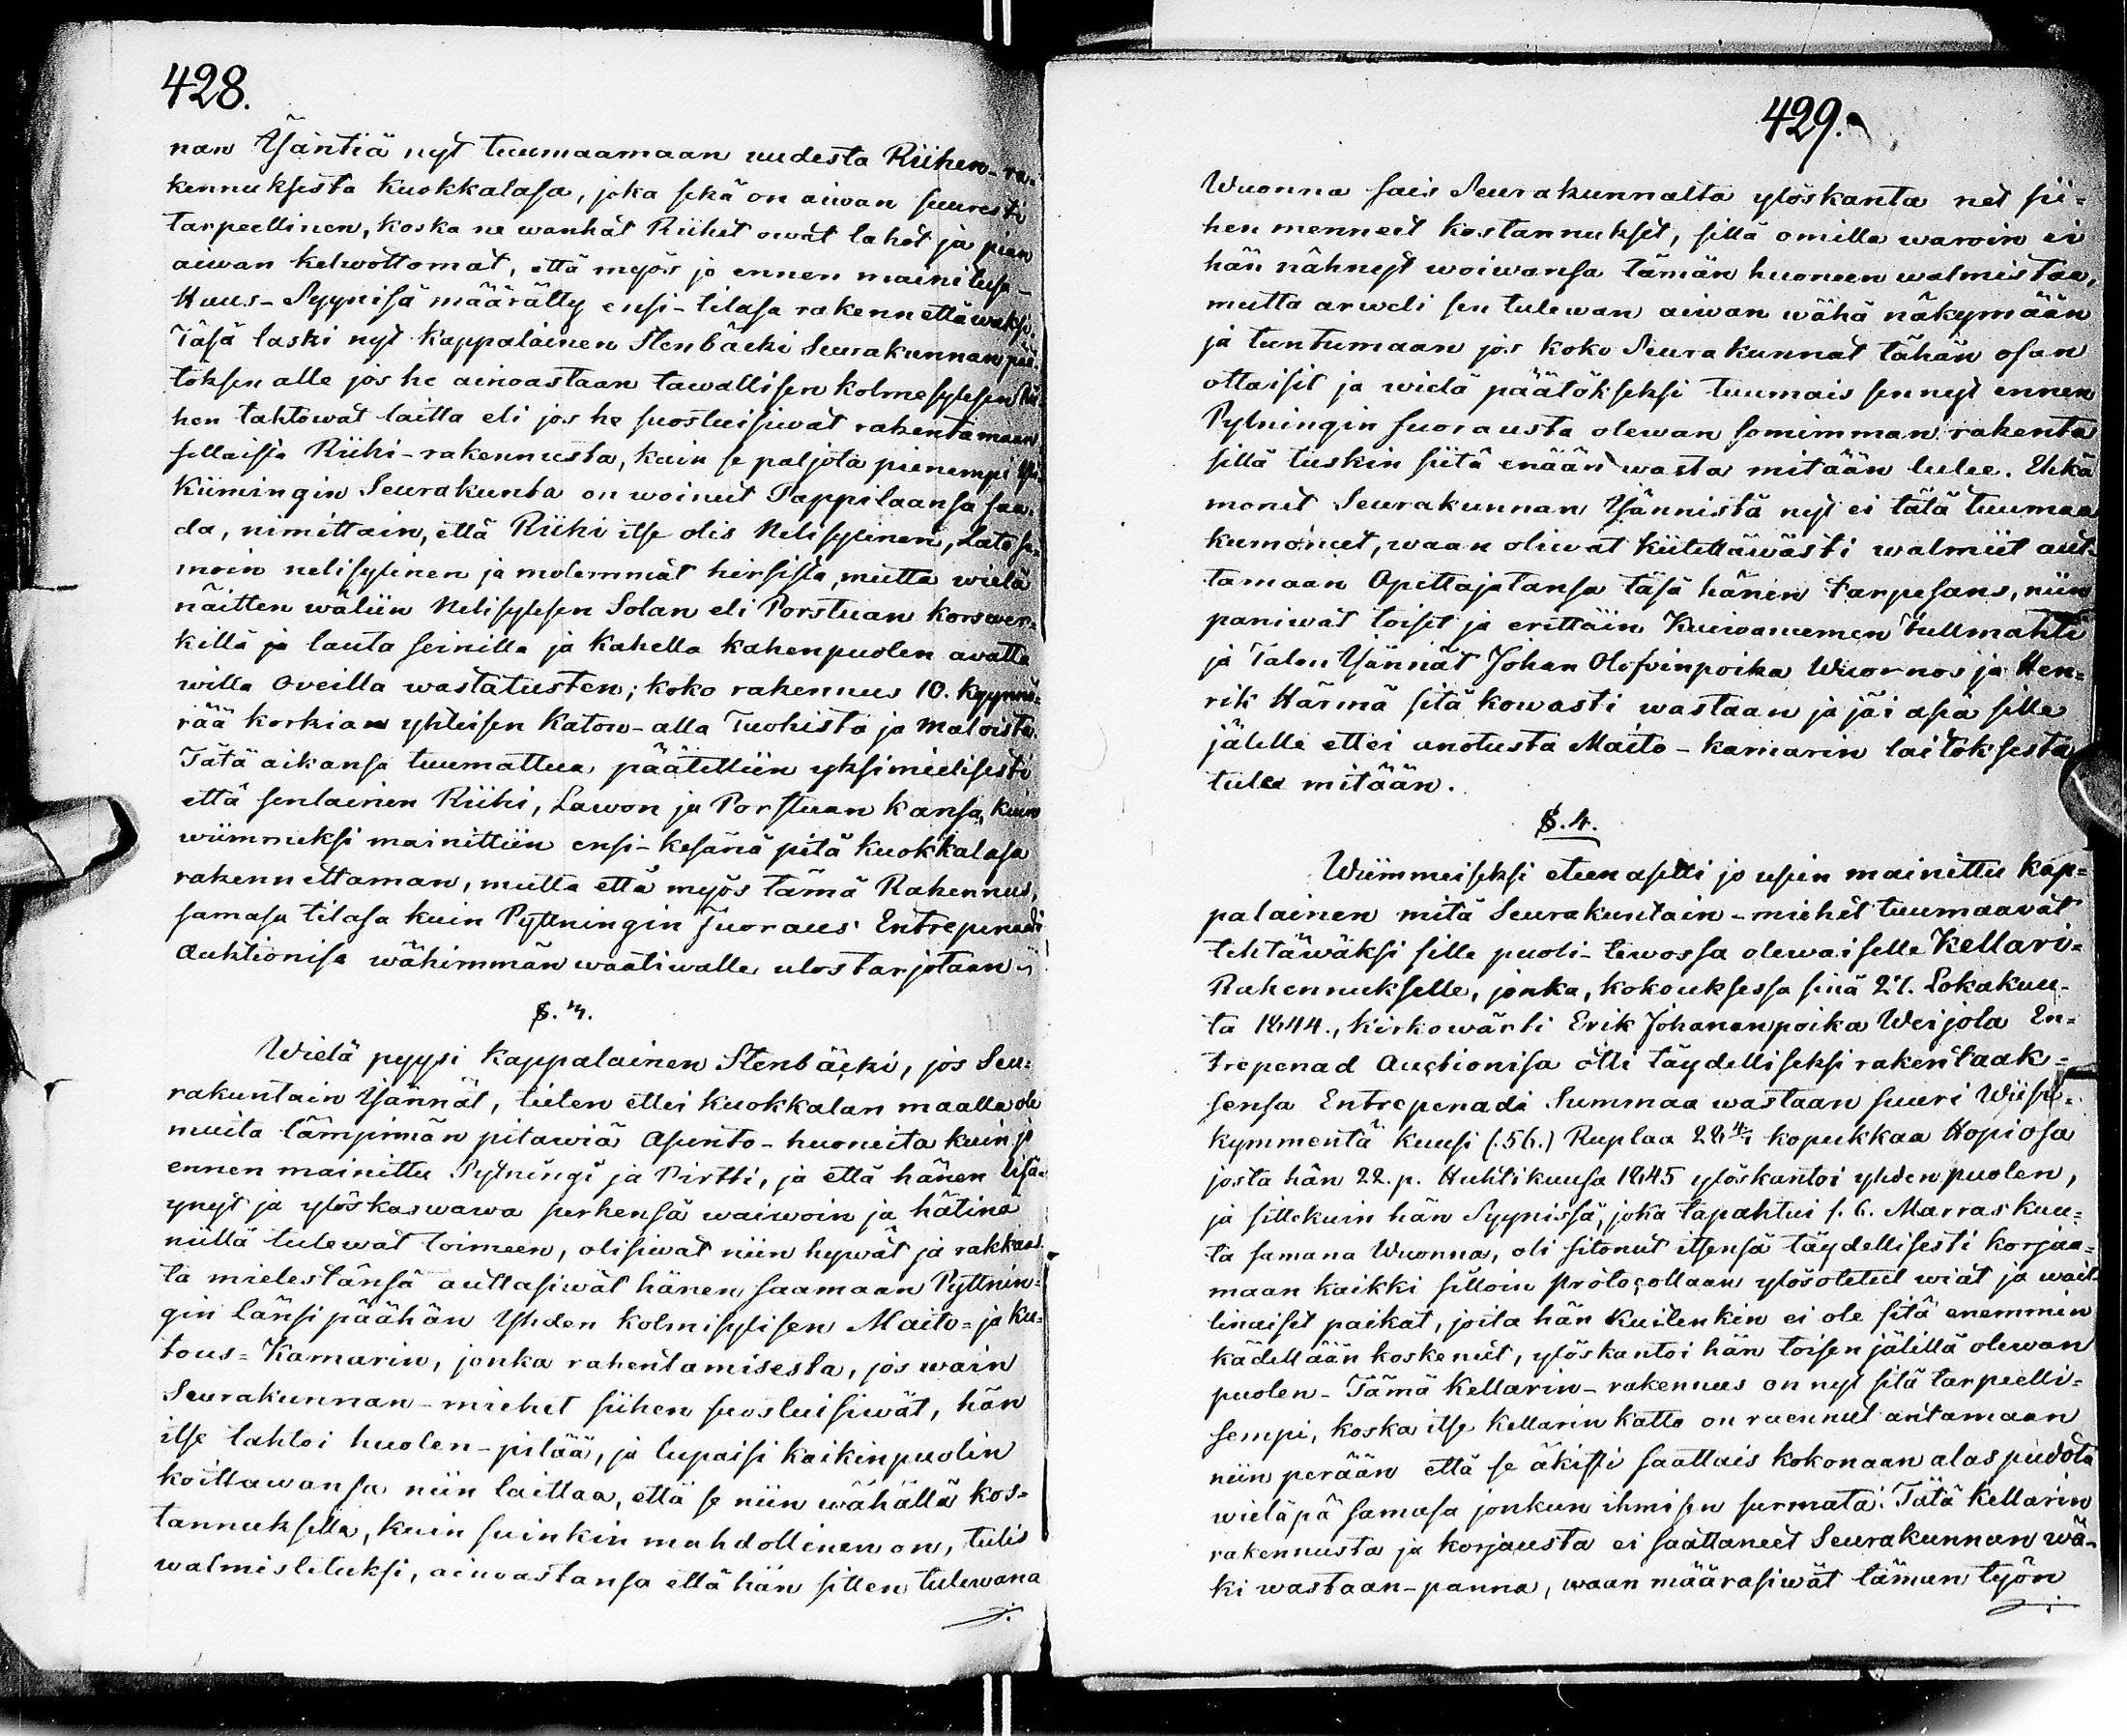 428.
nan Isäntiä nyt tuumaamaan uudesta Riihen-ra-
kennuksesta Kuokkalasa, joka sekä on aiwan suuresti
tarpeellinen, koska ne wanhat Riihet owat lahot ja pian
aiwan kelwottomat, että myös jo ennen mainitusa
Huus-Syynisä määrätty ensi-tilasa rakennettäwäksi.
Täsä laski nyt Kappalainen Stenbäcki Seurakunnan pää-
töksen alle jos he ainoastaan tawallisen kolmesylesen Rii-
hen tahtowat laitta eli jos he suostuisiwat rakentamaan
sellaista Riihi-rakennusta, kuin se paljota pienempi Yli
Kiimingin Seurakunta on woinut Pappilaansa saa-
da, nimittain, että Riihi itse olis Nelisylinen, Lato sa-
moin nelisylinen ja molemmat hirsistä, mutta wielä
näitten wäliin Nelisylesen Solan eli Porstuan korswer-
killä ja lauta seinillä ja kahella kahenpuolen awatta
willa Oveilla wastatusten; koko rakennus 10. kyynä-
rää korkian yhteisen Katon-alla Tuohista ja Maloista.
Tätä aikansa tuumattua päätettiin yksimielisesti
että senlainen Riihi, Lawon ja Porstuan kansa, kuin
wiimmeksi mainittiin ensi-kesänä pitä Kuokkalasa
rakennettaman, mutta että myös tämä Rakennus,
samasa tilasa kuin Pyttningin Fuoraus Entrepenadi
Auktionisa wähimmän waatiwalle ulos tarjotaan
§. 3.
Wielä pyysi Kappalainen Stenbäcki, jos Seu-
rakuntain Isännät, tieten ettei Kuokkalan maalla ole
muita lämpimän pitawiä Asunto-huoneita kuin jo
ennen mainittu Pytningi ja Pirtti, ja että hänen lisä-
ynyt ja ylöskaswawa perhensä waiwoin ja hätinä
niillä tulewat toimeen, olisiwat niin hywät ja rakkaas
ta mielestänsä auttasiwat hänen saamaan Pyttnin-
gin länsi päähän Yhden kolmisylisen Maito- ja Ku-
tous-Kamarin, jonka rakentamisesta, jos wain
Seurakunnan-miehet siihen suostuisiwat, hän
itse tahtoi huolen-pitää, ja lupaisi kaikinpuolin
koittawansa niin laittaa, että se niin wähällä kos-
tannuksella, kuin suinkin mahdollinen on, tulis
walmistetuksi, ainoastansa että hän sitten tulewana
429.
Wuonna sais Seurakunnalta ylöskanta net sii-
hen menneet kostannukset, sillä omilla waroin ei
hän nähnyt woiwansa tämän huoneen walmistaa,
mutta arweli sen tulewan aiwan wähä näkymään
ja tuntumaan jos koko Seurakunnat tähän osan
ottaisit ja wielä päätökseksi tuumais sen nyt ennen
Pytningin fuorausta olewan somimman rakenta
sillä tuskin siitä enään wasta mitään tulee. Ehkä
monet Seurakunnan Isännistä nyt ei tätä tuumaa
kumoneet, waan oliwat kiitettäwästi walmiit aut-
tamaan Opettajatansa täsä hänen tarpesans, niin
paniwat toiset ja erittäin Kuiwaniemen fullmahti
ja Talon Isännät Johan Olofvinpoika Wuornos ja Hen-
rik Härmä sitä kowasti wastaan ja jäi asia sille
jälelle ettei anotusta Maito-kamarin laitoksesta
tule mitään.
§. 4.
Wiimmeiseksi eteen asetti jo usein mainittu Kap-
palainen mitä Seurakuntain-miehet tuumaavat
tehtäwäksi sille puoli-tewossa olewaiselle Kellari-
Rakennukselle, jonka, kokouksessa sinä 27. Lokakuu-
ta 1844., Kirkowärti Erik Johananpoika Weijola En-
trepenad Auctionisa otti täydelliseksi rakentaak-
sensa Entrepenadi Summaa wastaan suuri Wiisi-
kymmentä kuusi (:56.) Ruplaa 28 4/7 kopukkaa Hopiosa
josta hän 22. p. Huhtikuusa 1845 ylöskantoi yhden puolen,
ja sittekuin hän Syynissä, joka tapahtui s. 6. Marraskuu-
ta samana Wuonna, oli sitonut itsensä täydellisesti korjaa-
maan kaikki silloin protocollaan ylösotetut wiat ja wail-
linaiset paikat, joita hän Kuitenkin ei ole sitä enemmin
kädellään koskenut, ylöskantoi hän toisen jälillä olewan
puolen- Tämä Kellarin-rakennus on nyt sitä tarpeelli-
sempi, koska itse kellarin katto on ruennut antamaan
niin perään että se äkisti saattais kokonaan alas pudota
wieläpä samasa jonkun ihmisen surmata. Tätä Kellarin
rakennusta ja korjausta ei saattaneet Seurakunnan wä-
ki wastaan-panna, waan määräsiwät tämän työn